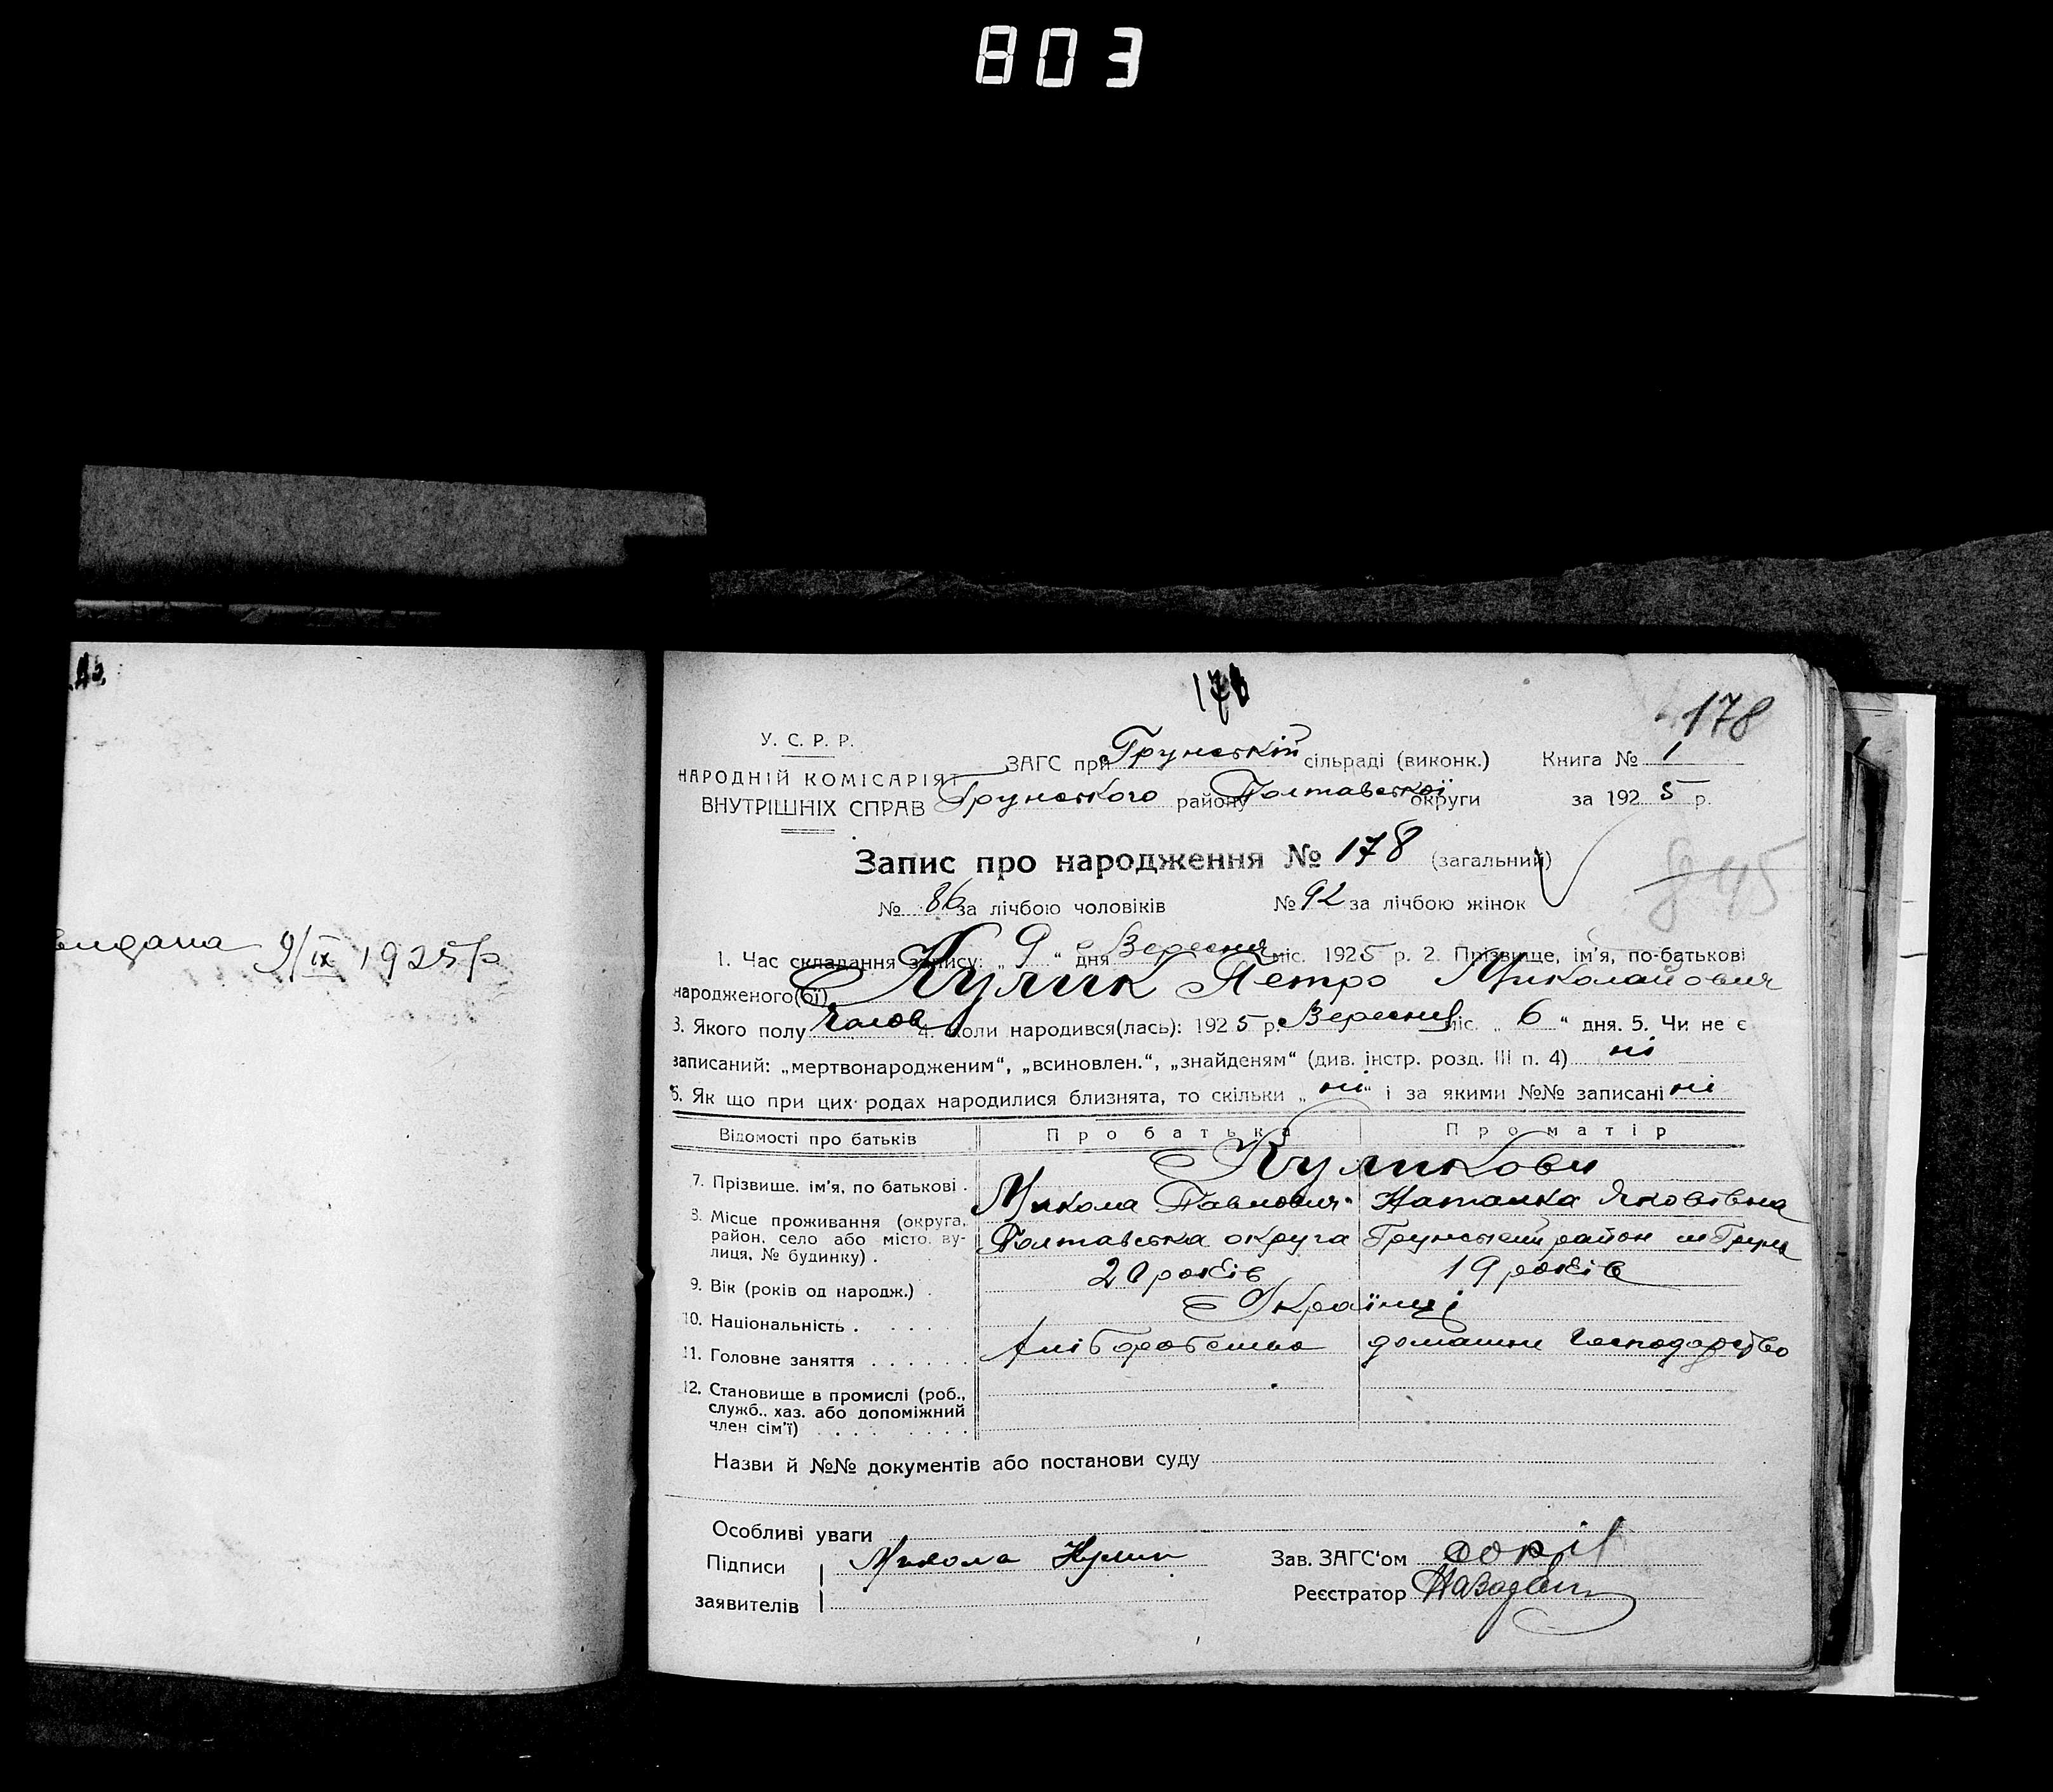 803
178
У. С. Р. Р.
НАРОДНІЙ КОМІСАРІЯТ
ВНУТРІШНІХ СПРАВ
ЗАГС при Грунській сільраді (виконк.) Книга № 1
Грунського району Полтавської округи за 1925 р.
Запис про народження № 178 (загальний)
845
№ 86 за лічбою чоловіків № 92 за лічбою жінок
видана 9/IX 1925 р
1. Час складання запису: „ 9 “ дня Вересня міс. 1925 р. 2. Прізвище, ім'я, по-батькові
народженого(ої) Кулик Петро Миколайович
3. Якого полу чолов 4. Коли народився(лась): 1925 р. Вересня міс. „ 6 “ дня. 5. Чи не є
записаний: „мертвонародженим“, „всиновлен.“, „знайденям“ (див. інстр. розд. III п. 4) ні
6. Як що при цих родах народилися близнята, то скільки „ ні “ і за якими №№ записані ні
Відомості про батьків Про батька Про матір
Куликови
7. Прізвище, ім'я, по батькові . Микола Павлович Наталка Яковівна
8. Місце проживання (округа, район, село або місто, вулиця, № будинку) . Полтавська округа Грунський район м Грунь
9. Вік (років од народж.) . 20 років 19 років
10. Національність . . . . . Українці
11. Головне заняття . . . . . . хліборобство домашнє господарство
12. Становище в промислі (роб.,
служб., хаз. або допоміжний
член сім'ї) . . . . . . . . .
Назви й №№ документів або постанови суду
Особливі уваги
Підписи Микола Кулик Зав. ЗАГС'ом
заявителів Реєстратор